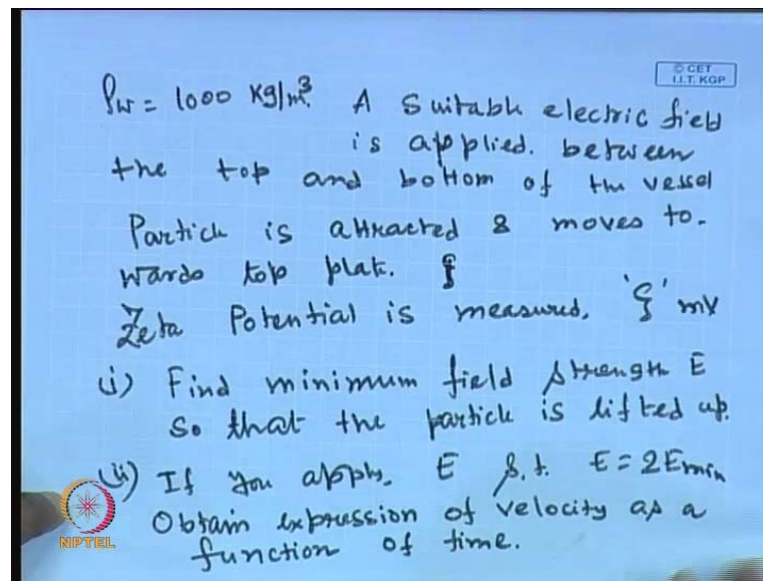 ρw = 1000 Kg/m³. A suitable electric field
© CET
I.I.T. KGP
is applied. between
the top and bottom of the vessel
Particle is attracted & moves to-
wards top plate. ξ
Zeta Potential is measured, 'ξ' mV
(i) Find minimum field strength E
so that the particle is lifted up.
(ii) If you apply. E s.t. E = 2Emin
Obtain expression of velocity as a
function of time.
NPTEL